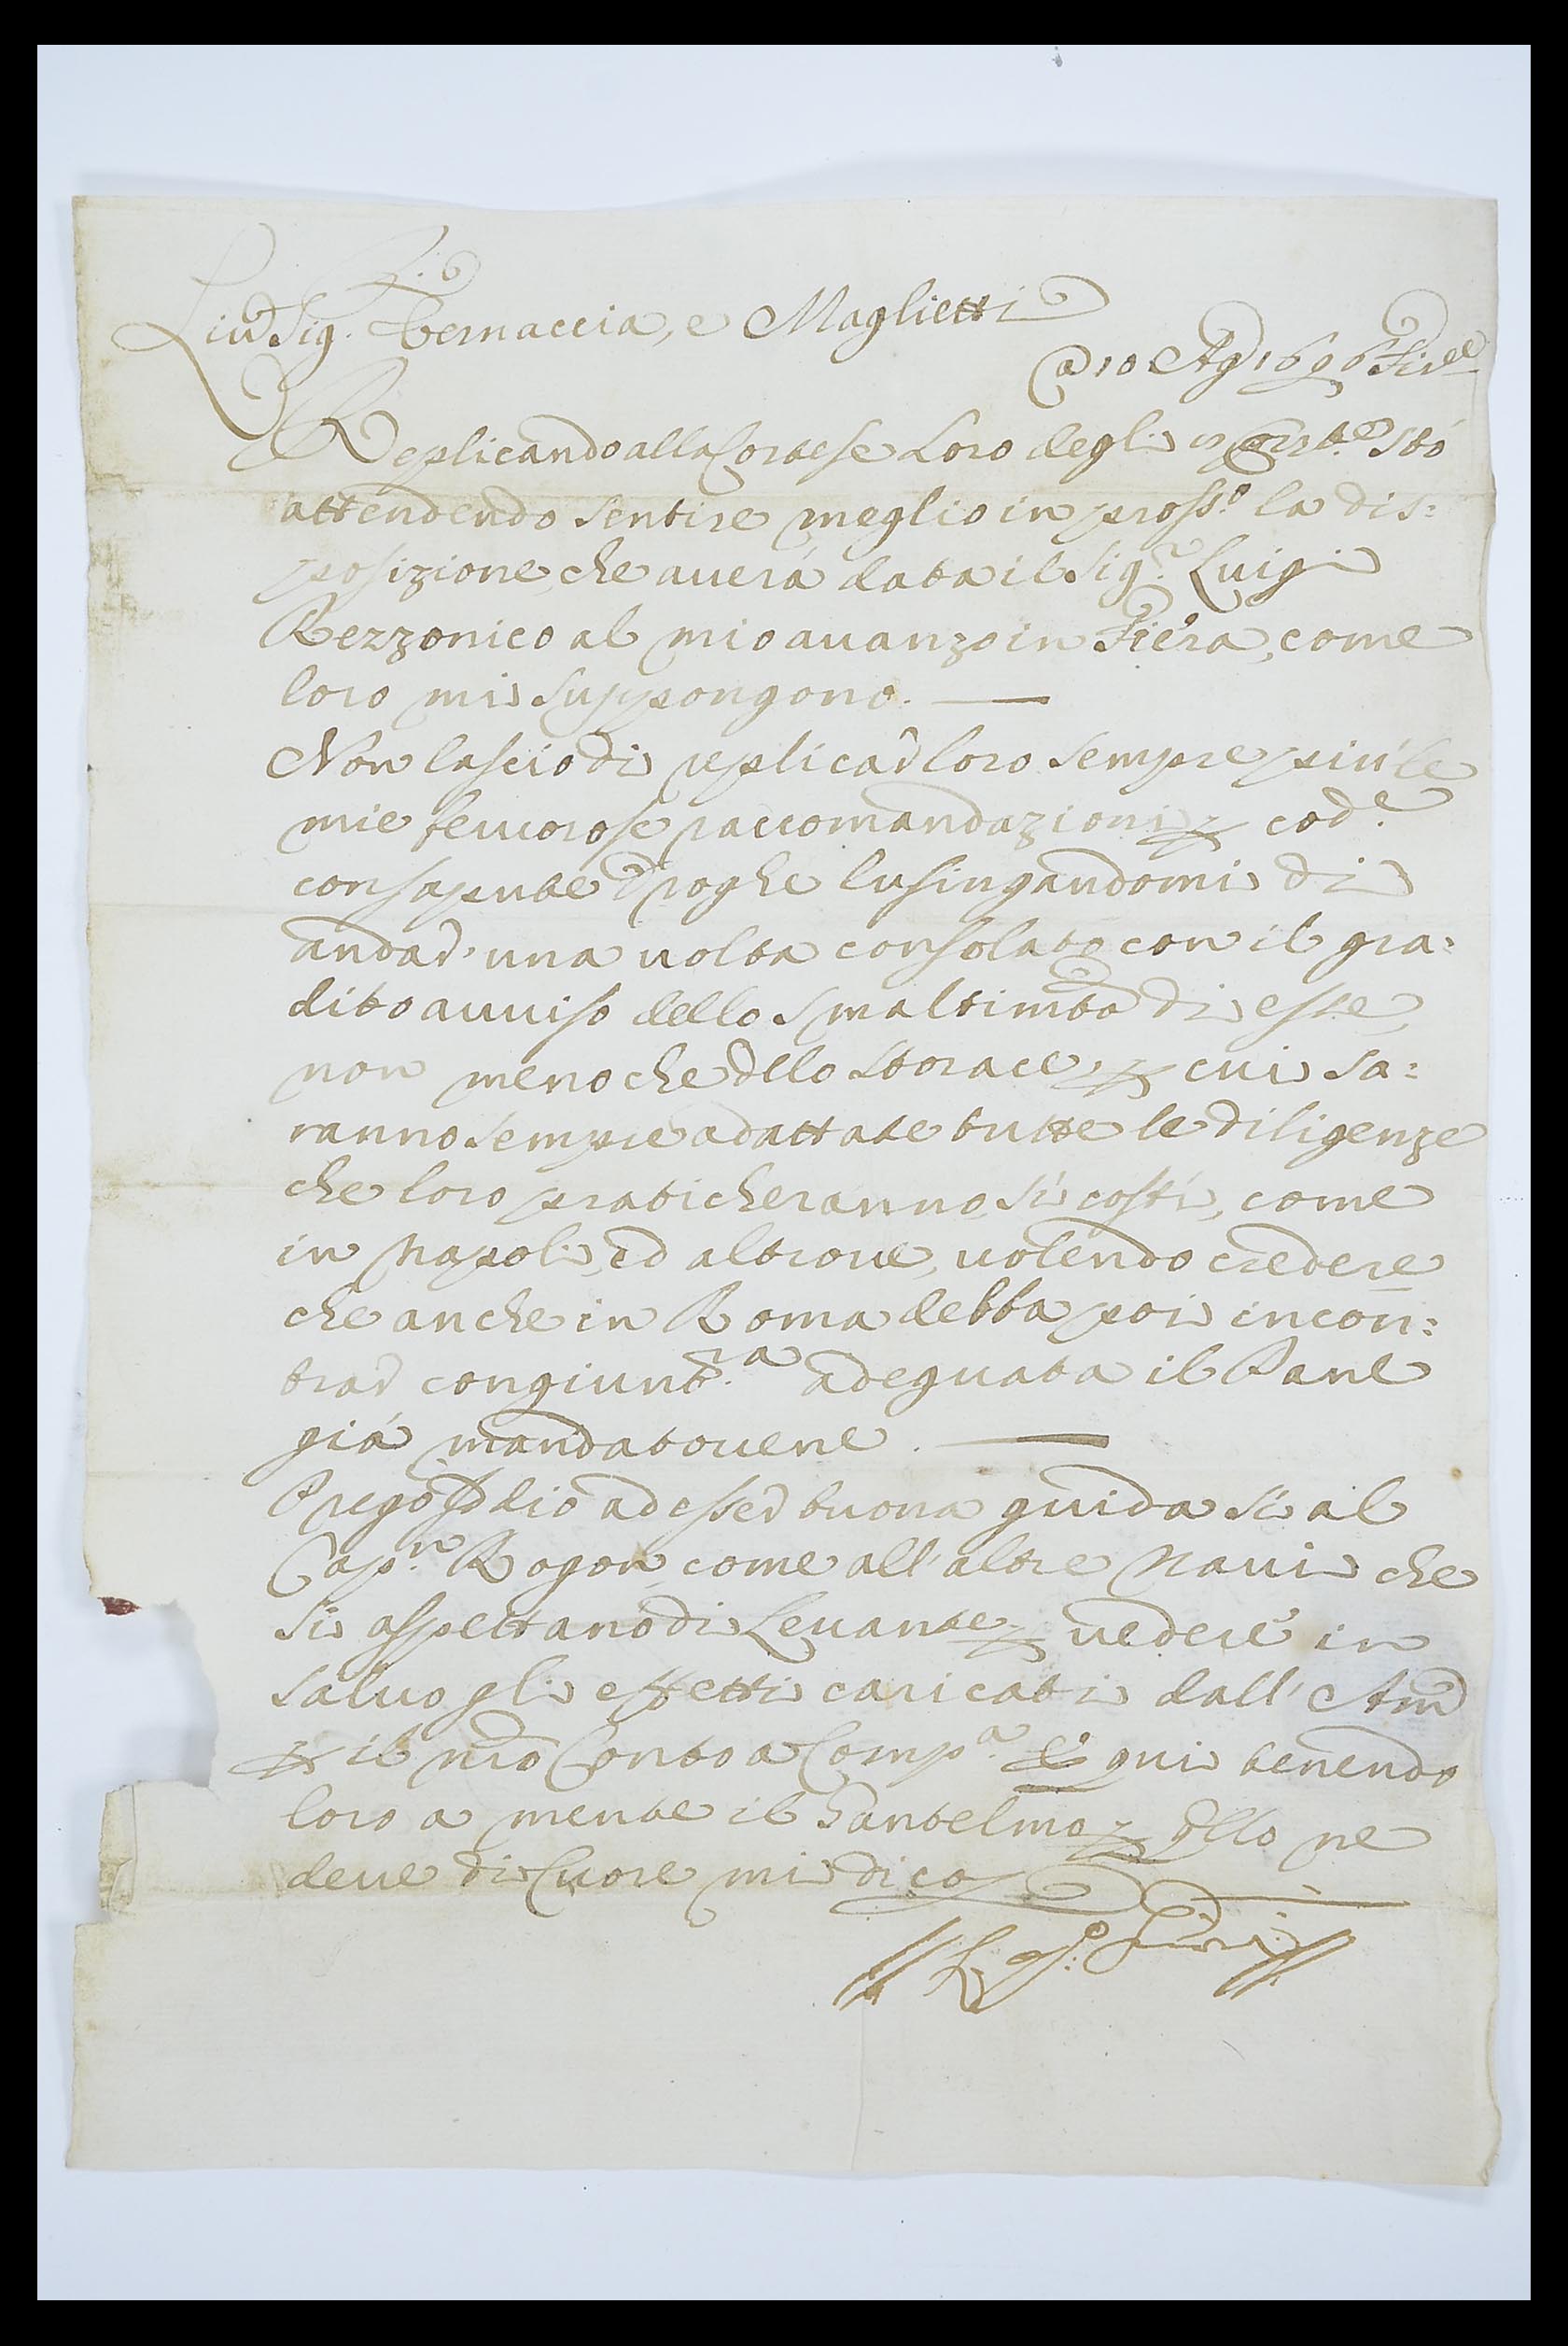 Liu.o Sig.ri Bernaccia, e Maglietti
@ 10 Ag.o 1696 Fir.ze
Replicando alla Cortese Loro degli corr.te stò
attendendo sentire meglio in pross.o la dis=
posizione, che auerà data il Sig.r Luigi
Rezzonico al mio auanzo in Fiera, come
loro mi suppongono.
Non lascio di replicar loro sempre più le
mie feruorose raccomandazioni p cod.e
consapute Droghe lusingandomi di
andar' una uolta consolato con il gra=
dito auuiso dello smaltim.to di esse,
non meno che dello storace, p cui sa=
ranno sempre adattate tutte le diligenze
che loro praticheranno, sì costì, come
in Napoli, ed altroue, uolendo credere
che anche in Roma debba poi incon=
trar congiunt.ra adeguata il Pane
già mandatouene.
Prego Iddio ad esser buona guida sì al
Cap.n Rogon, come all'altre Naui che
si aspettano di Leuante p uedere in
saluo gli effetti caricati dall' Am.o
p il nro Conto a Comp.a e qui tenendo
loro a mente il Santelmo p q.llo ne
deue di Cuore mi dico